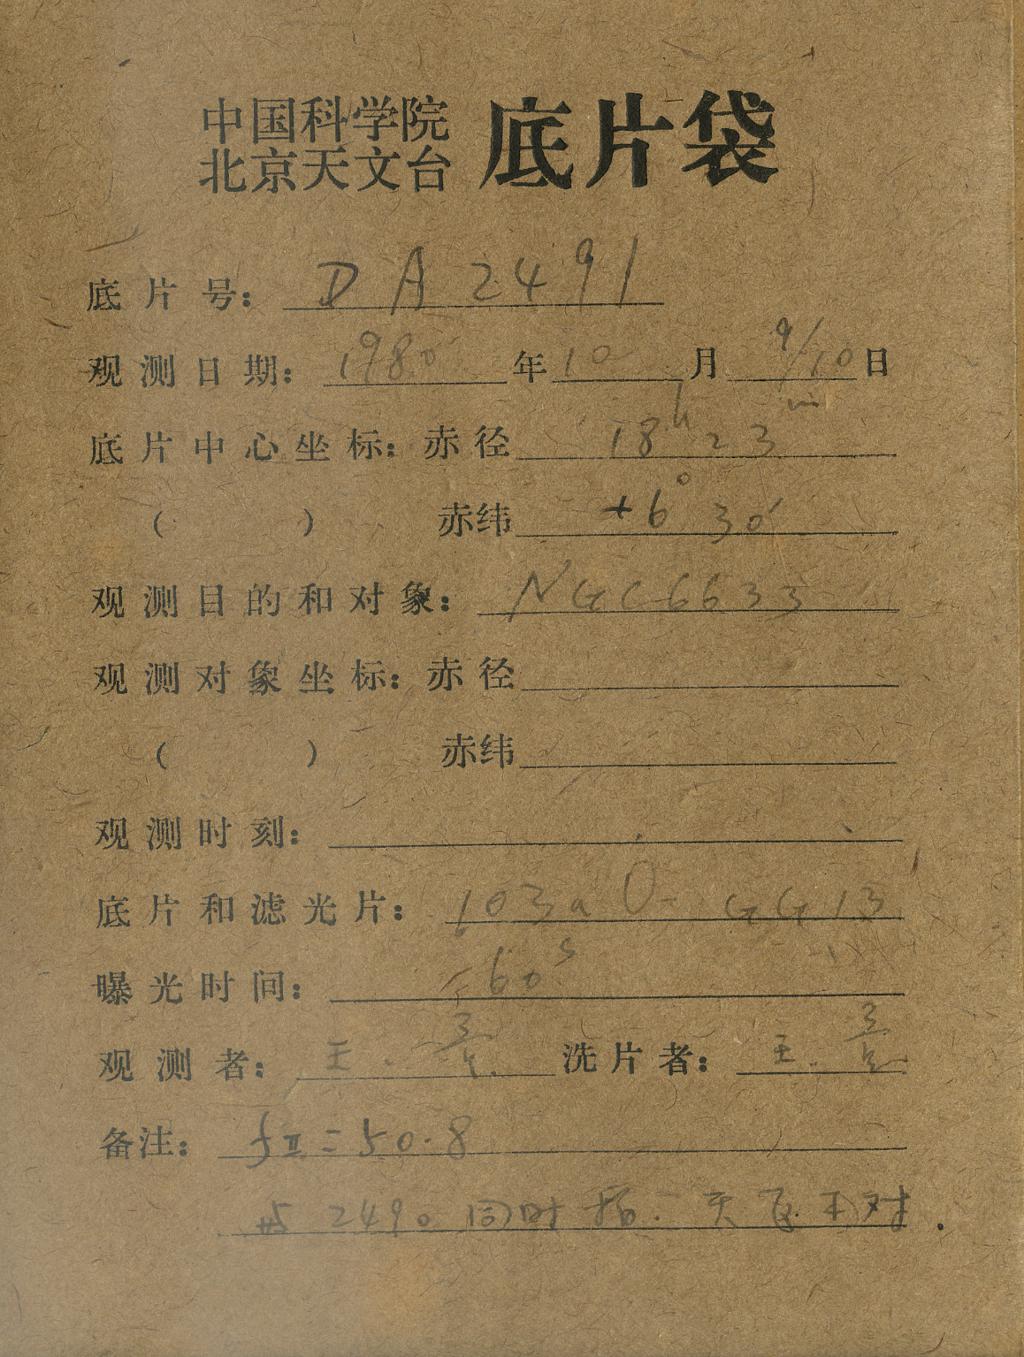 中国科学院
北京天文台 底片袋
底片号: DA2491
观测日期: 1980 年 10 月 9/10 日
底片中心坐标: 赤径 18h 23m
( ) 赤纬 +6° 30′
观测目的和对象: NGC6633
观测对象坐标: 赤径
( ) 赤纬
观测时刻:
底片和滤光片: 103aO- GG13
曝光时间: 60s
观测者: 王. 洗片者: 王.
备注: fⅡ=50.8
与2490同时 天 不对.